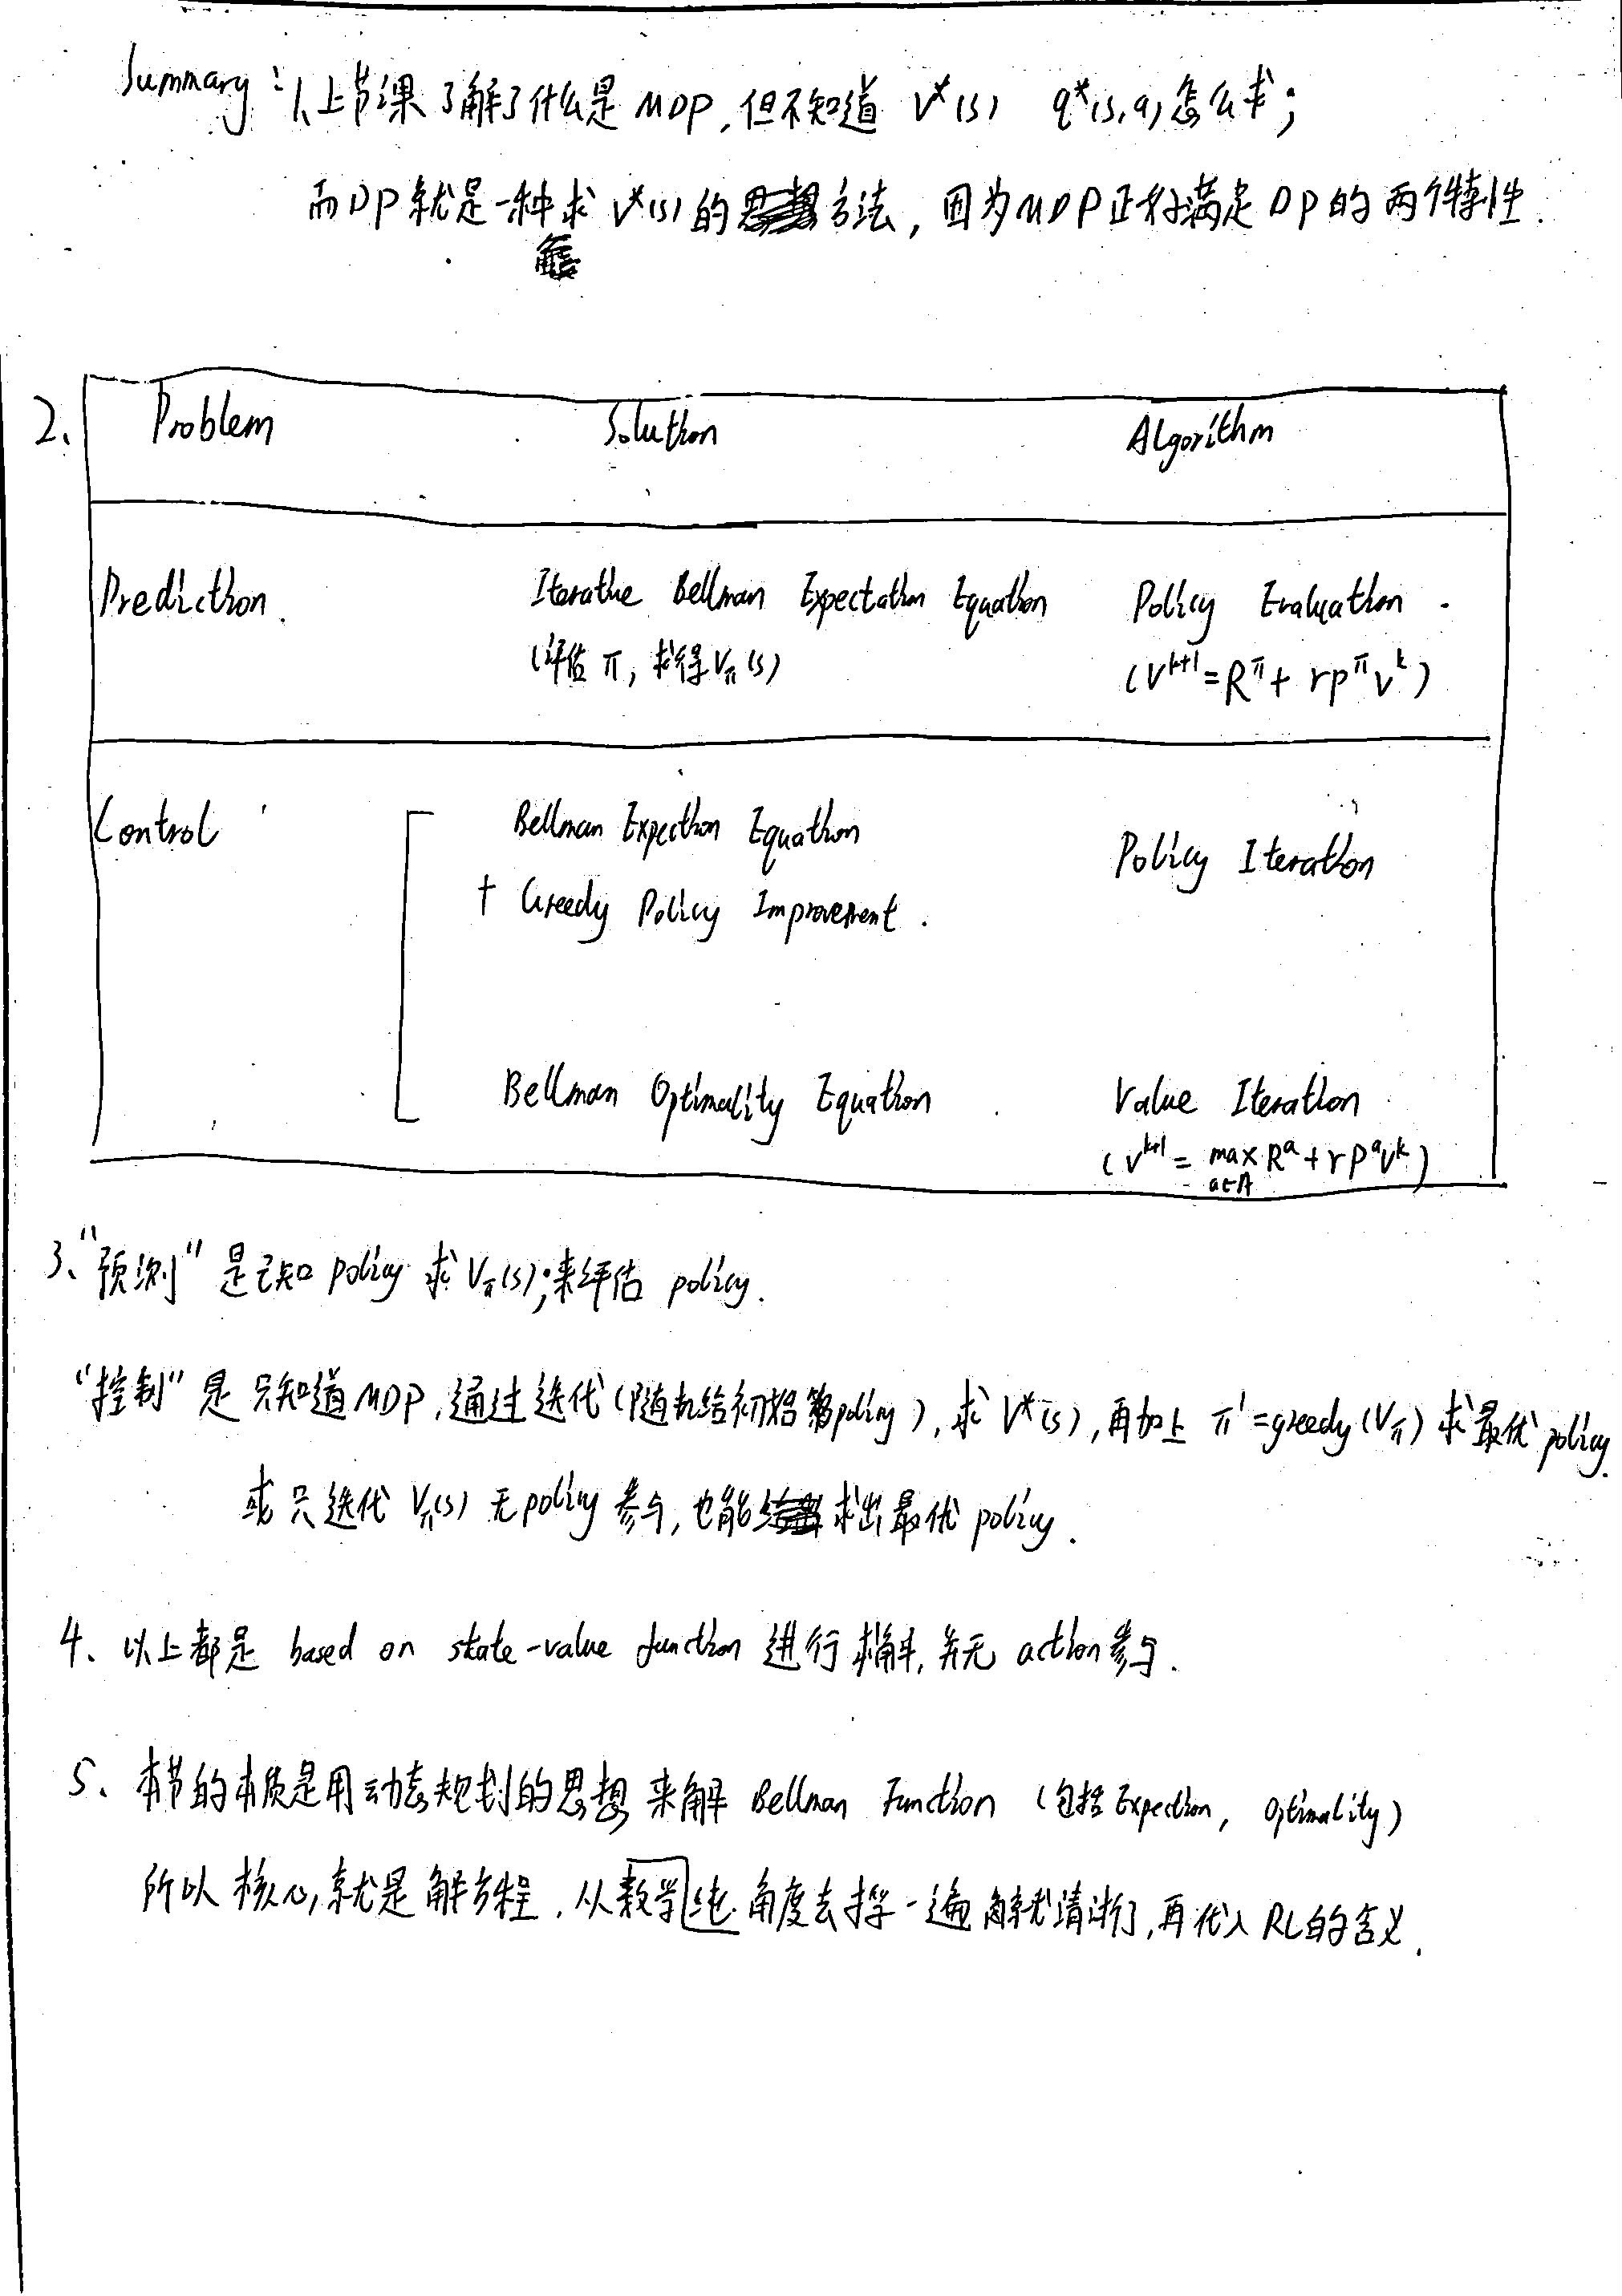 Summary: 1、上节课了解了什么是MDP,但不知道 V*(s) q*(s,a)怎么求;
而DP就是一种求V*(s)的方法,因为MDP正好满足DP的两个特性.
2、 Problem Solution Algorithm
Prediction. Iterative Bellman Expectation Equation Policy Evaluation.
(评估π,求得Vπ(s)) (V^{k+1}=R^π+rP^πV^k)
Control Bellman Expection Equation Policy Iteration
+ Greedy Policy Improvement.
Bellman Optimality Equation. Value Iteration
(V^{k+1}=max_{a∈A} R^a+rP^aV^k)
3、"预测"是已知policy求Vπ(s);来评估policy.
"控制"是只知道MDP,通过迭代(随机给初始policy),求V*(s),再加上π'=greedy(Vπ)求最优policy.
或只迭代Vπ(s)无policy参与,也能求出最优policy.
4、以上都是 based on state-value function 进行求解,并无action参与.
5、本节的本质是用动态规划的思想来解 Bellman Function (包括Expection, Optimality)
所以核心,就是解方程,从数学纯角度去捋一遍解就清晰了,再代入RL的含义.